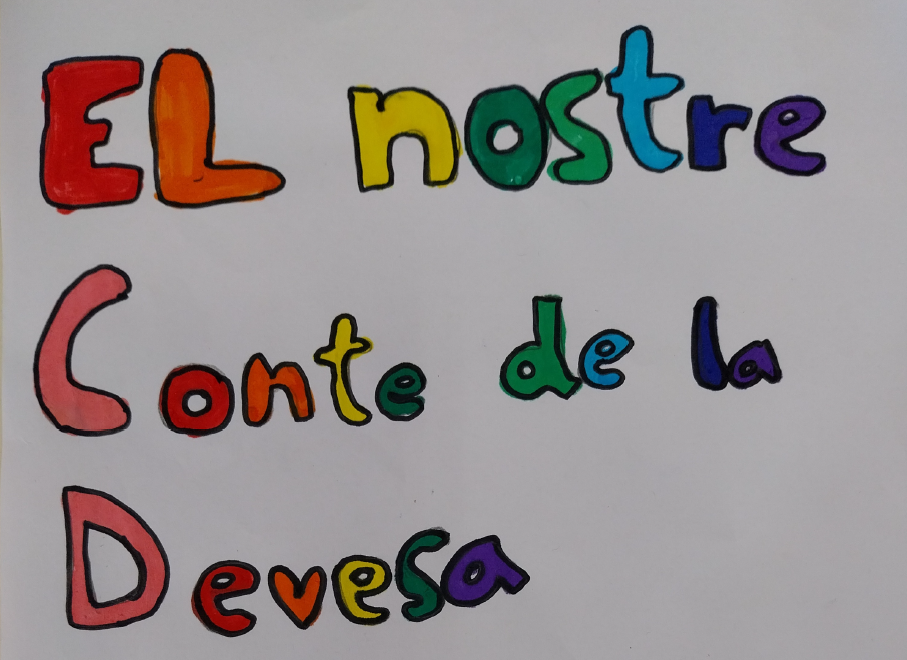 EL nostre
Conte de la
Devesa